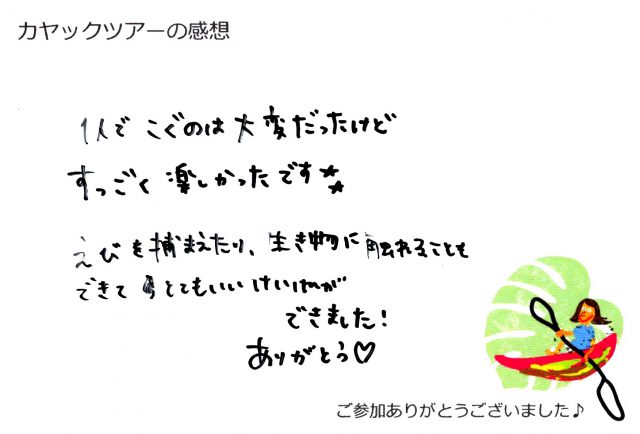 カヤックツアーの感想
1人で こぐのは大変だったけど
すっごく楽しかったです
えびを捕まえたり、生き物に触れることも
できて とてもいいけいけんが
できました!
ありがとう♡
ご参加ありがとうございました♪